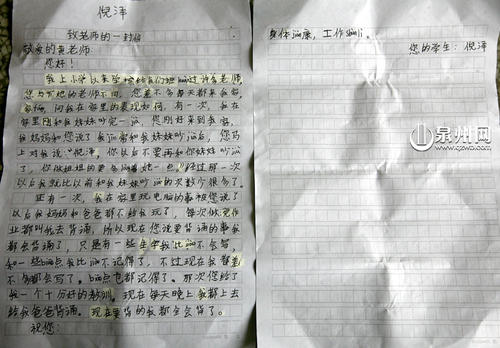 倪泽
致老师的一封信
敬爱的黄老师
您好！
我上小学以来学校给我们班换过许多老师，
您与其他的老师不同，您差不多每天都来我家，
问我在家里的表现如何，有一次，我在
家里刚和我妹妹吵完一次，您刚好来到我家，
我妈妈和您说了我常和我妹妹吵后，您马
上对我说："倪泽，你以后不要再和你妹妹吵
了，你做姐姐的要多让着她一点。"经过那一次
以后我就比以前和我妹妹吵的次数少很多了。
还有一次，我在家里玩电脑的事被您说了
以后我妈妈和爸爸都不给我玩了，每次做完作
业都叫我去背诵，所以现在您说要背诵的事我
都会背诵了，只是有一些生字我比不会写，
和一些点我比不记得了，不过现在我都差
不多都会写了。点也都记得了。那次您给了
我一个十分好的教训。现在每天晚上我都上去
给我爸爸背诵。现在要背的我都全会背了。
祝您：
身体健康，工作顺利。
您的学生：倪泽
泉州网
www.qzwb.com